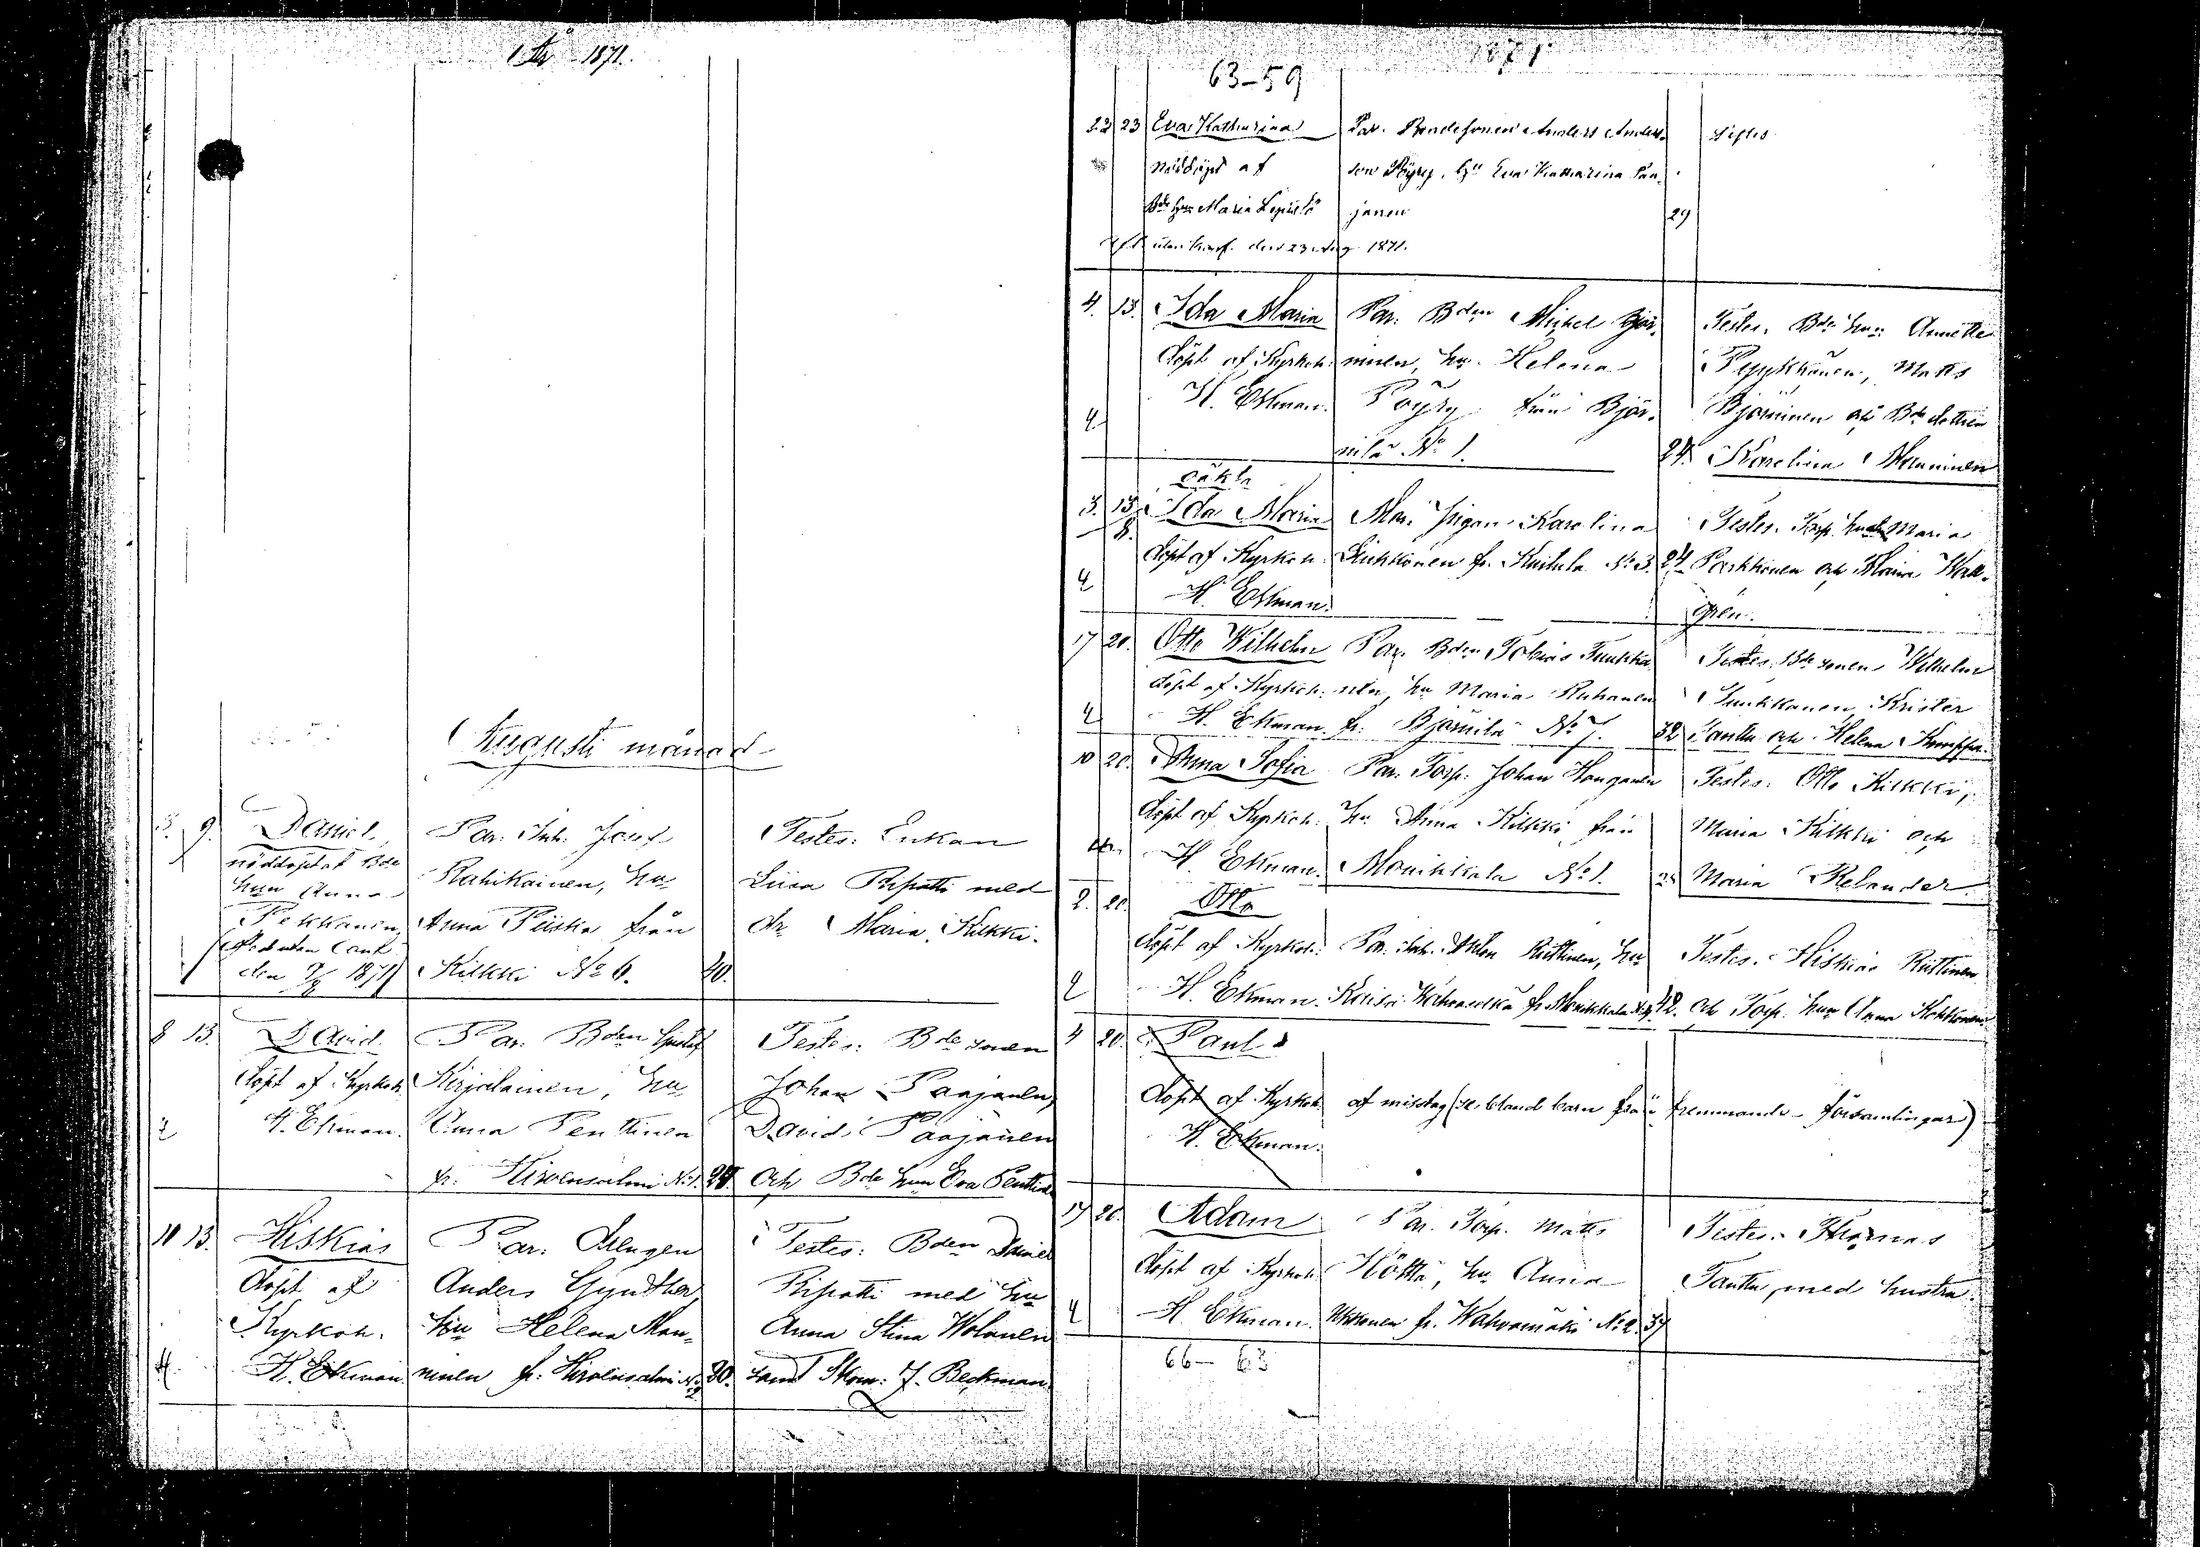 År 1871.
Augusti månad
5. 9. Daniel, Par: Inh: Josef Testes: Enkan
nöddöpt af Bde Rahikainen, hu Liisa Ripatti med
hun Anna
Pekkanen, Anna Piiska från dr Maria Kilkki.
död utan conf. Kilkki No 6. 40.
den 9/8 1871
8 13. David. Par: Bden Gustaf Testes: Bde sonen
döpt af Kyrkoh. Kirjalainen, hu Johan Paajanen,
2 H. Ekman. Anna Penttinen David Paajanen
fr: Hirvensalmi No 1. 24. och Bde hun Eva Penttinen
10 13. Hiskias Par: Drengen Testes: Bden Daniel
döpt af Anders Gynther, Ripatti med hu
Kyrkoh. hu Helena Man- Anna Stina Wolanen
4 H. Ekman ninen fr: Hirvensalmi No 2 30. samt Skom: J. Beckman
1871
63-59
22 23 Eva Katharina Par. Bondesonen Anders Anders- Testes
nöddöpt af son Pöyry, hu Eva Katharina Paa-
Bde hun Maria Lepistö janen 29
utan konf. den 23 Aug 1871.
4. 13. Ida Maria Par: Bden Michel Björ- Testes, Bde hun Annette
döpt af Kyrkoh: ninen, hu Helena Pyykkönen, Matts
4 H. Ekman. Pöyry från Björ- Björninen och Bde dottren
nilä No 1. 24. Karolina Manninen
oäkta
3. 13. Ida Maria Mor: Pigan Karolina Testes. Torp. hun Maria
8.
döpt af Kyrkoh: Liukkonen fr. Kuitula No 3. 24 Parkkonen och Maria Wall-
4 H. Ekman. gren.
17 20. Otto Wilhelm Par: Bden Tobias Tuukka- Testes: Bde sonen Wilhelm
döpt af Kyrkoh: nen, hu Maria Ruhanen Tuukkanen, Krister
4 H. Ekman fr: Björnilä No 7. 32 Tanttu och Helena Kumppu.
10 20. Anna Sofia Par. Torp: Johan Hanganen Testes: Otto Kilkki,
döpt af Kyrkoh: hu Anna Kilkki från Maria Kilkki och
4 H. Ekman. Monikkala No 1. 28 Maria Relander.
2. 20. Otto
döpt af Kyrkoh: Par. Inh. Adam Riittinen, hu Testes. Hiskias Riittinen
2 H. Ekman. Kaisa fr. Monikkala 42. och Torp. hun Anna Kokkonen
4 20. Paul
döpt af Kyrkoh af misstag (se bland barn från fremmande församlingar)
H. Ekman.
17 20. Adam Par. Torp. Matts Testes: Thomas
döpt af Kyrkoh Höltta, hu Anna Tanttu, med hustru.
4 H. Ekman. Ukkonen fr. Wahvamäki No 2. 37
66-63